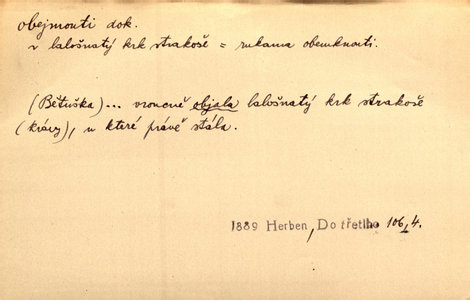 obejmouti dok.
v lalošnatý krk strakoše = rukama obemknouti.
(Bětuška)... vroucně objala lalošnatý krk strakoše
(krávy), u které právě stála.
1889 Herben, Do třetího 106, 4.